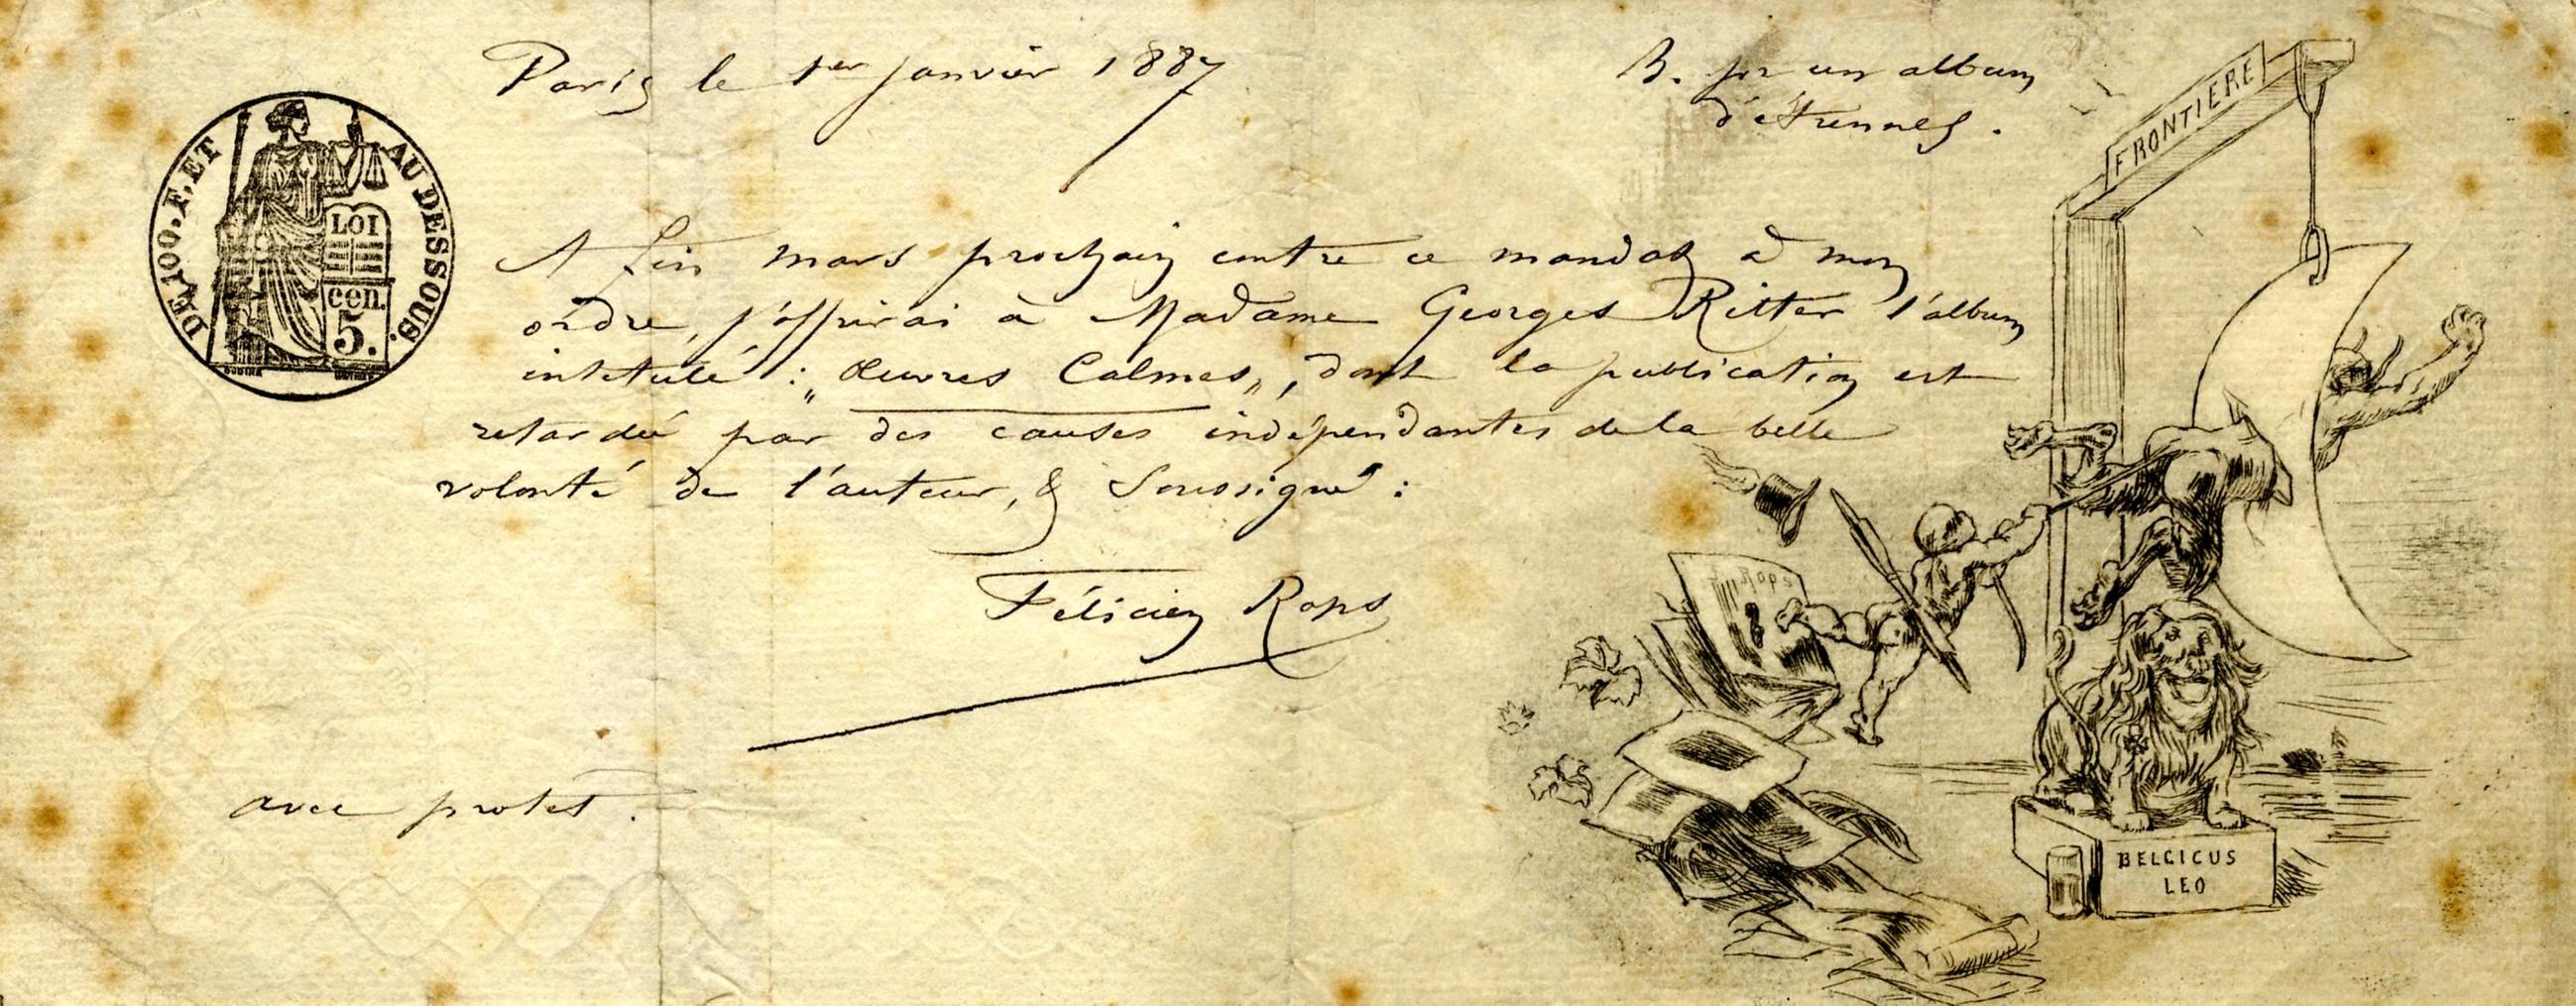 Paris le 1er janvier 1887
B. pr un album
d'étrennes.
DE 100. F. ET AU DESSOUS.
LOI
cen.
5.
A fin mars prochain contre ce mandat à mon
ordre, j'offrirai à Madame Georges Ritter l'album
intitulé : „Œuvres Calmes„, dont la publication est
retardée par des causes indépendantes de la belle
volonté de l'auteur, & Soussigné :
Félicien Rops
avec protet.
FRONTIERE
F Rops
BELGICUS
LEO